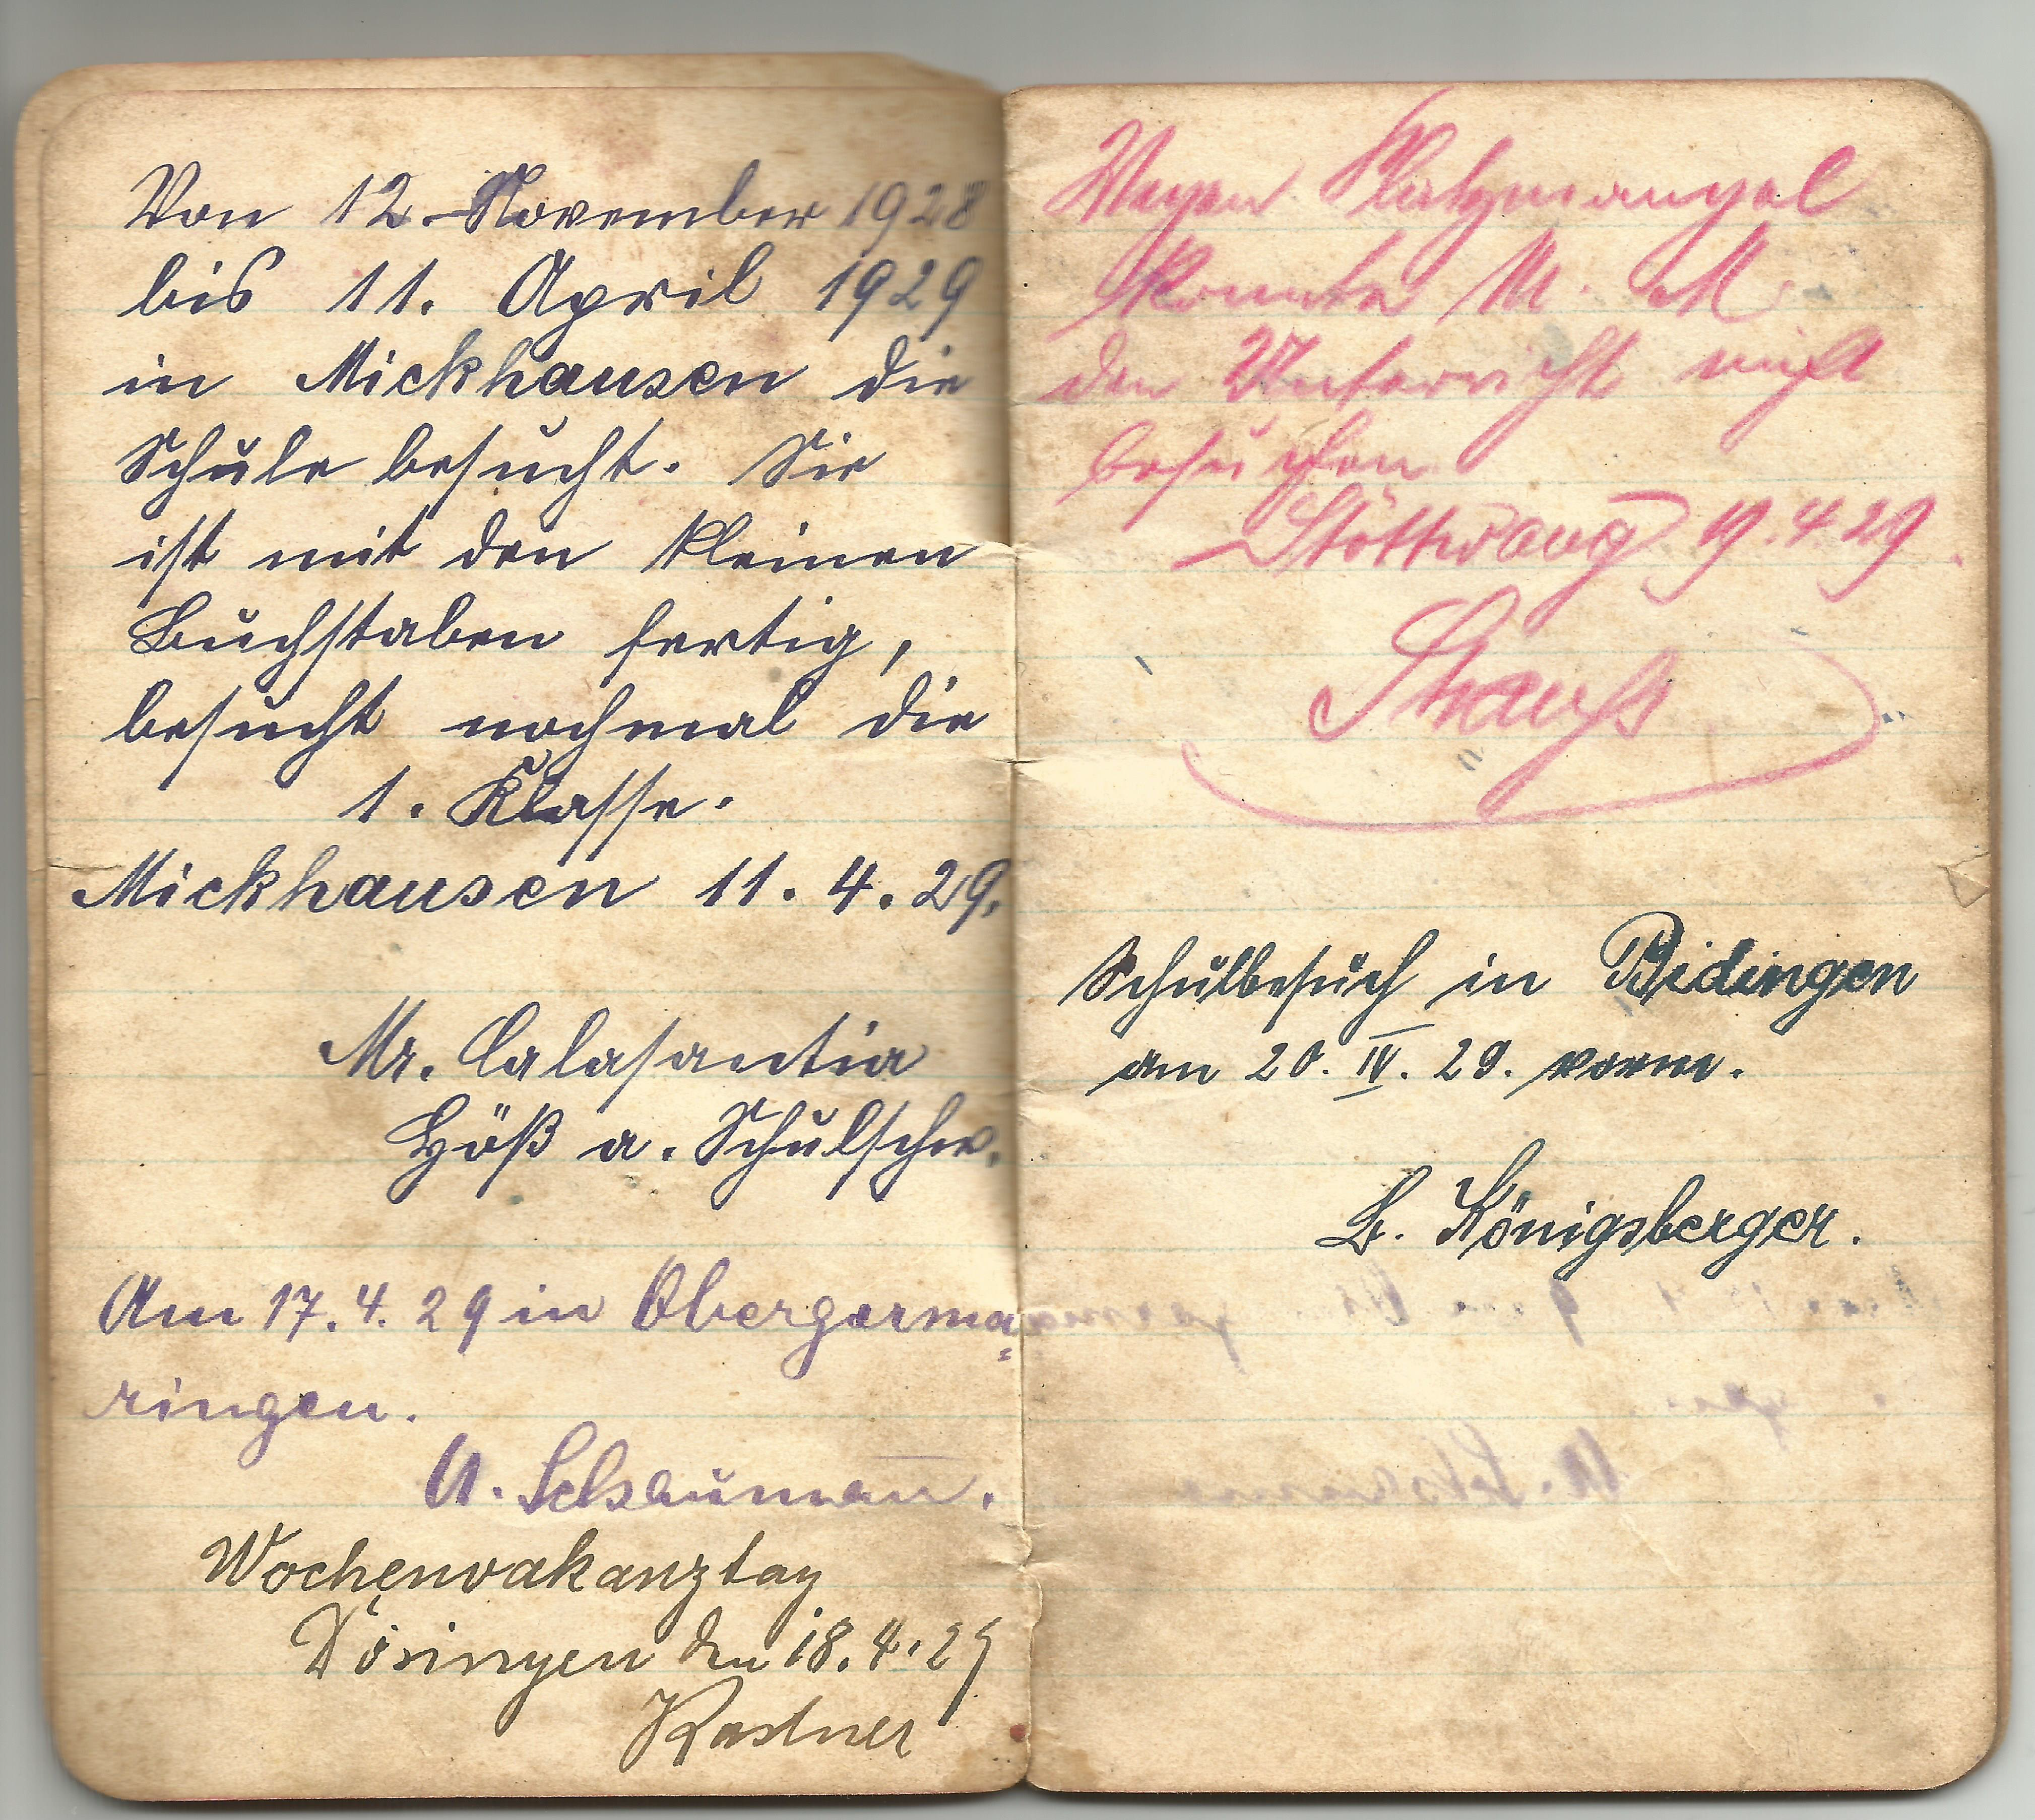 Von 12. November 1928
bis 11. April 1929
in Mickhausen die
Schule besucht. Sie
ist mit den kleinen
Buchstaben fertig,
besucht nochmal die
1. Klasse.
Mickhausen 11. 4. 29.
Mr. Calasantia
Höß a. Schulschw.
Am 17. 4. 29 in Obergerma=
ringen.
Wochenvakanztag
Dösingen den 18. 4. 29
Kastner
Wegen Platzmangel
konnte M. M.
den Unterricht nicht
besuchen
Stöttwang 19. 4 29.
Strauß
Schulbesuch in Bidingen
am 20. IV. 29. vorm.
B. Königsberger.